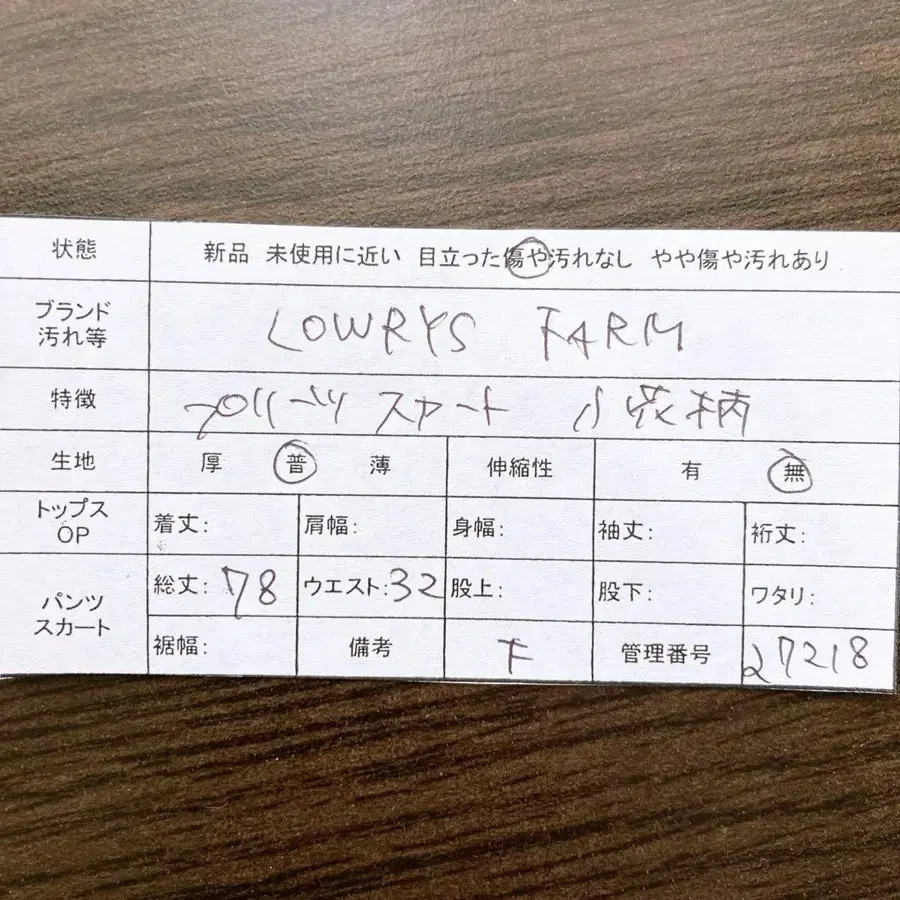 状態 新品 未使用に近い 目立った傷や汚れなし やや傷や汚れあり
ブランド
汚れ等 LOWRYS FARM
特徴 プリーツスカート 小花柄
生地 厚 普 薄 伸縮性 有 無
トップス
OP 着丈: 肩幅: 身幅: 袖丈: 裄丈:
パンツ
スカート 総丈: 78 ウエスト: 32 股上: 股下: ワタリ:
裾幅: 備考 F 管理番号 27218